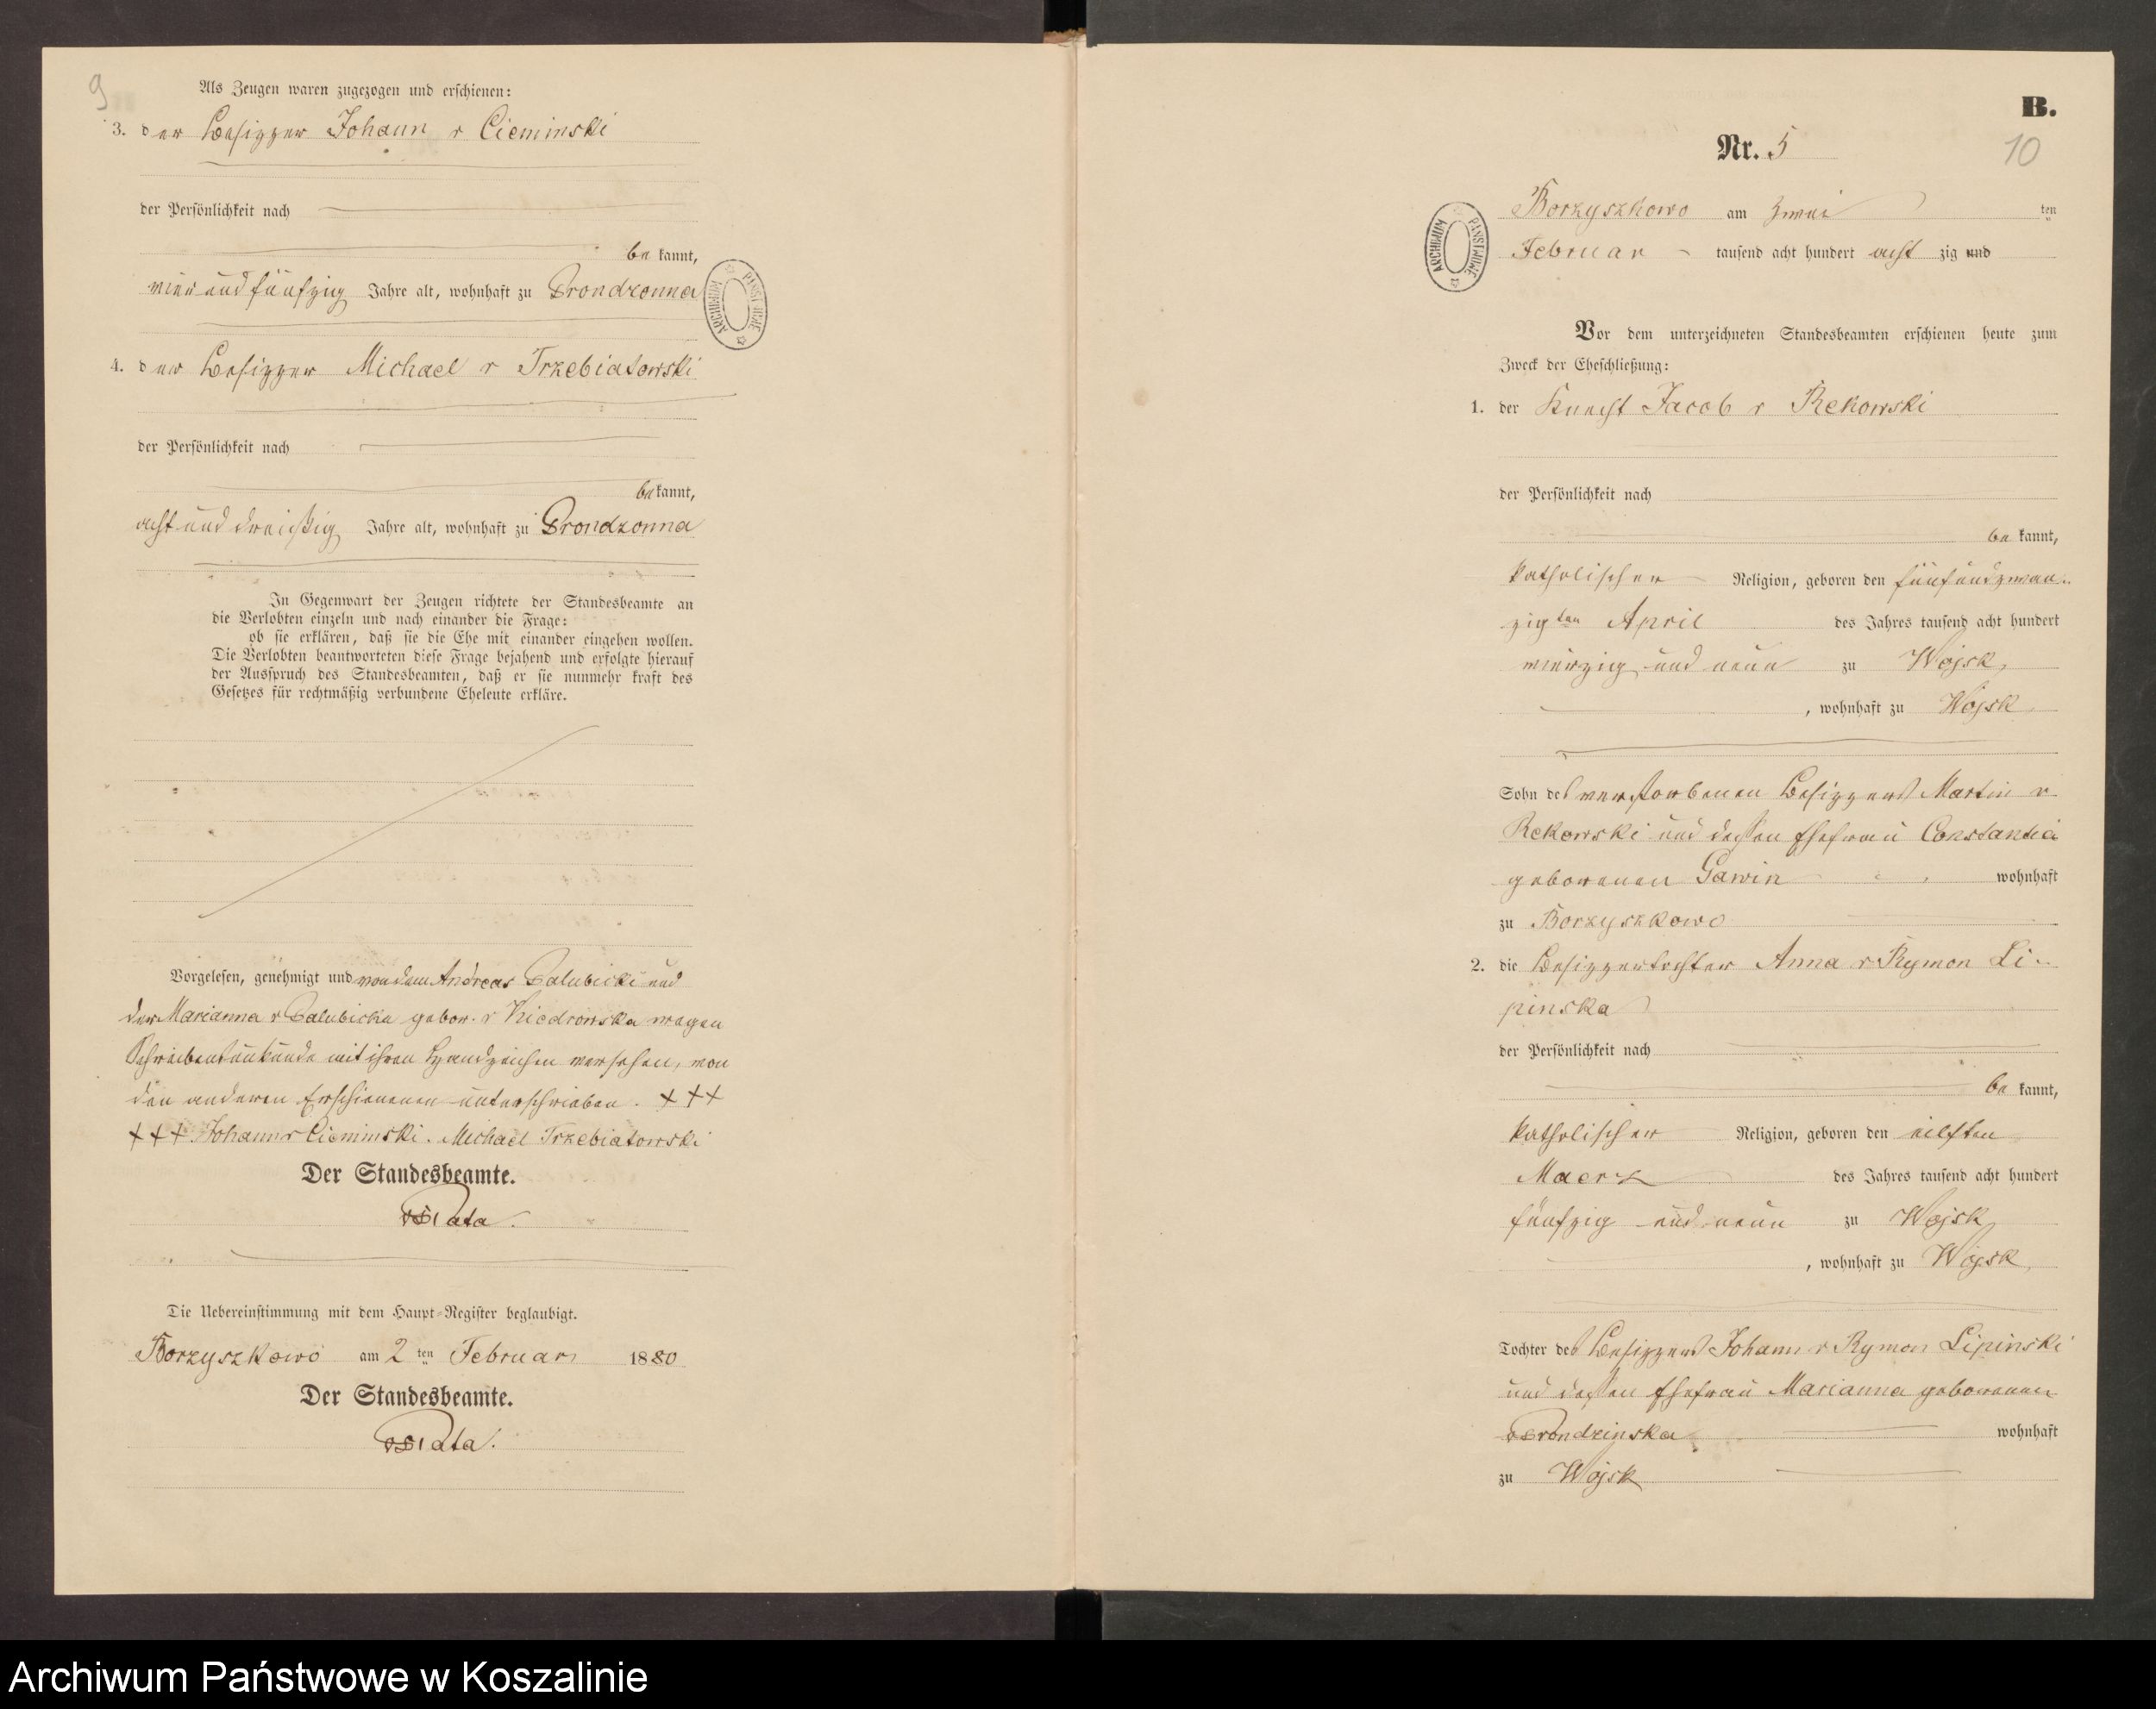 9
Als Zeugen waren zugezogen und erschienen:
3. der Besitzer Johann v Cieminski
der Persönlichkeit nach
be kannt,
vier und fünfzig Jahre alt, wohnhaft zu Prondzonna
4. der Besitzer Michael v Trzebiatowski
der Persönlichkeit nach
be kannt,
acht und dreißig Jahre alt, wohnhaft zu Prondzonna
In Gegenwart der Zeugen richtete der Standesbeamte an
die Verlobten einzeln und nach einander die Frage:
ob sie erklären, daß sie die Ehe mit einander eingehen wollen.
Die Verlobten beantworteten diese Frage bejahend und erfolgte hierauf
der Ausspruch des Standesbeamten, daß er sie nunmehr kraft des
Gesetzes für rechtmäßig verbundene Eheleute erkläre.
Vorgelesen, genehmigt und von dem Andreas Palubicki und
der Marianna v Palubicka gebor. v Kiedrowska wegen
Schreibensunkunde mit ihren Handzeichen versehen, von
den anderen Erschienenen unterschrieben. +++
+++ Johann v Cieminski. Michael Trzebiatowski
Der Standesbeamte.
Die Uebereinstimmung mit dem Haupt-Register beglaubigt.
Borzyszkowo am 2 ten Februar 1880
Der Standesbeamte.
B.
Nr. 5
10
Borzyszkowo am zwei ten
Februar tausend acht hundert acht zig und
Vor dem unterzeichneten Standesbeamten erschienen heute zum
Zweck der Eheschließung:
1. der Knecht Jacob v Rekowski
der Persönlichkeit nach
be kannt,
katholischer Religion, geboren den fünfundzwan-
zigten April des Jahres tausend acht hundert
vierzig und neun zu Wojsk,
, wohnhaft zu Wojsk
Sohn des verstorbenen Besitzers Martin v
Rekowski und dessen Ehefrau Constantia
geborenen Gawin wohnhaft
zu Borzyszkowo
2. die Besitzertochter Anna v Rymon Li-
pinska
der Persönlichkeit nach
be kannt,
katholischer Religion, geboren den eilften
Maerz des Jahres tausend acht hundert
fünfzig und neun zu Wojsk
, wohnhaft zu Wojsk,
Tochter des Besitzers Johann v Rymon Lipinski
und dessen Ehefrau Marianna geborenen
Prondzinska wohnhaft
zu Wojsk
ARCHIWUM PAŃSTWOWE
ARCHIWUM PAŃSTWOWE
Archiwum Państwowe w Koszalinie